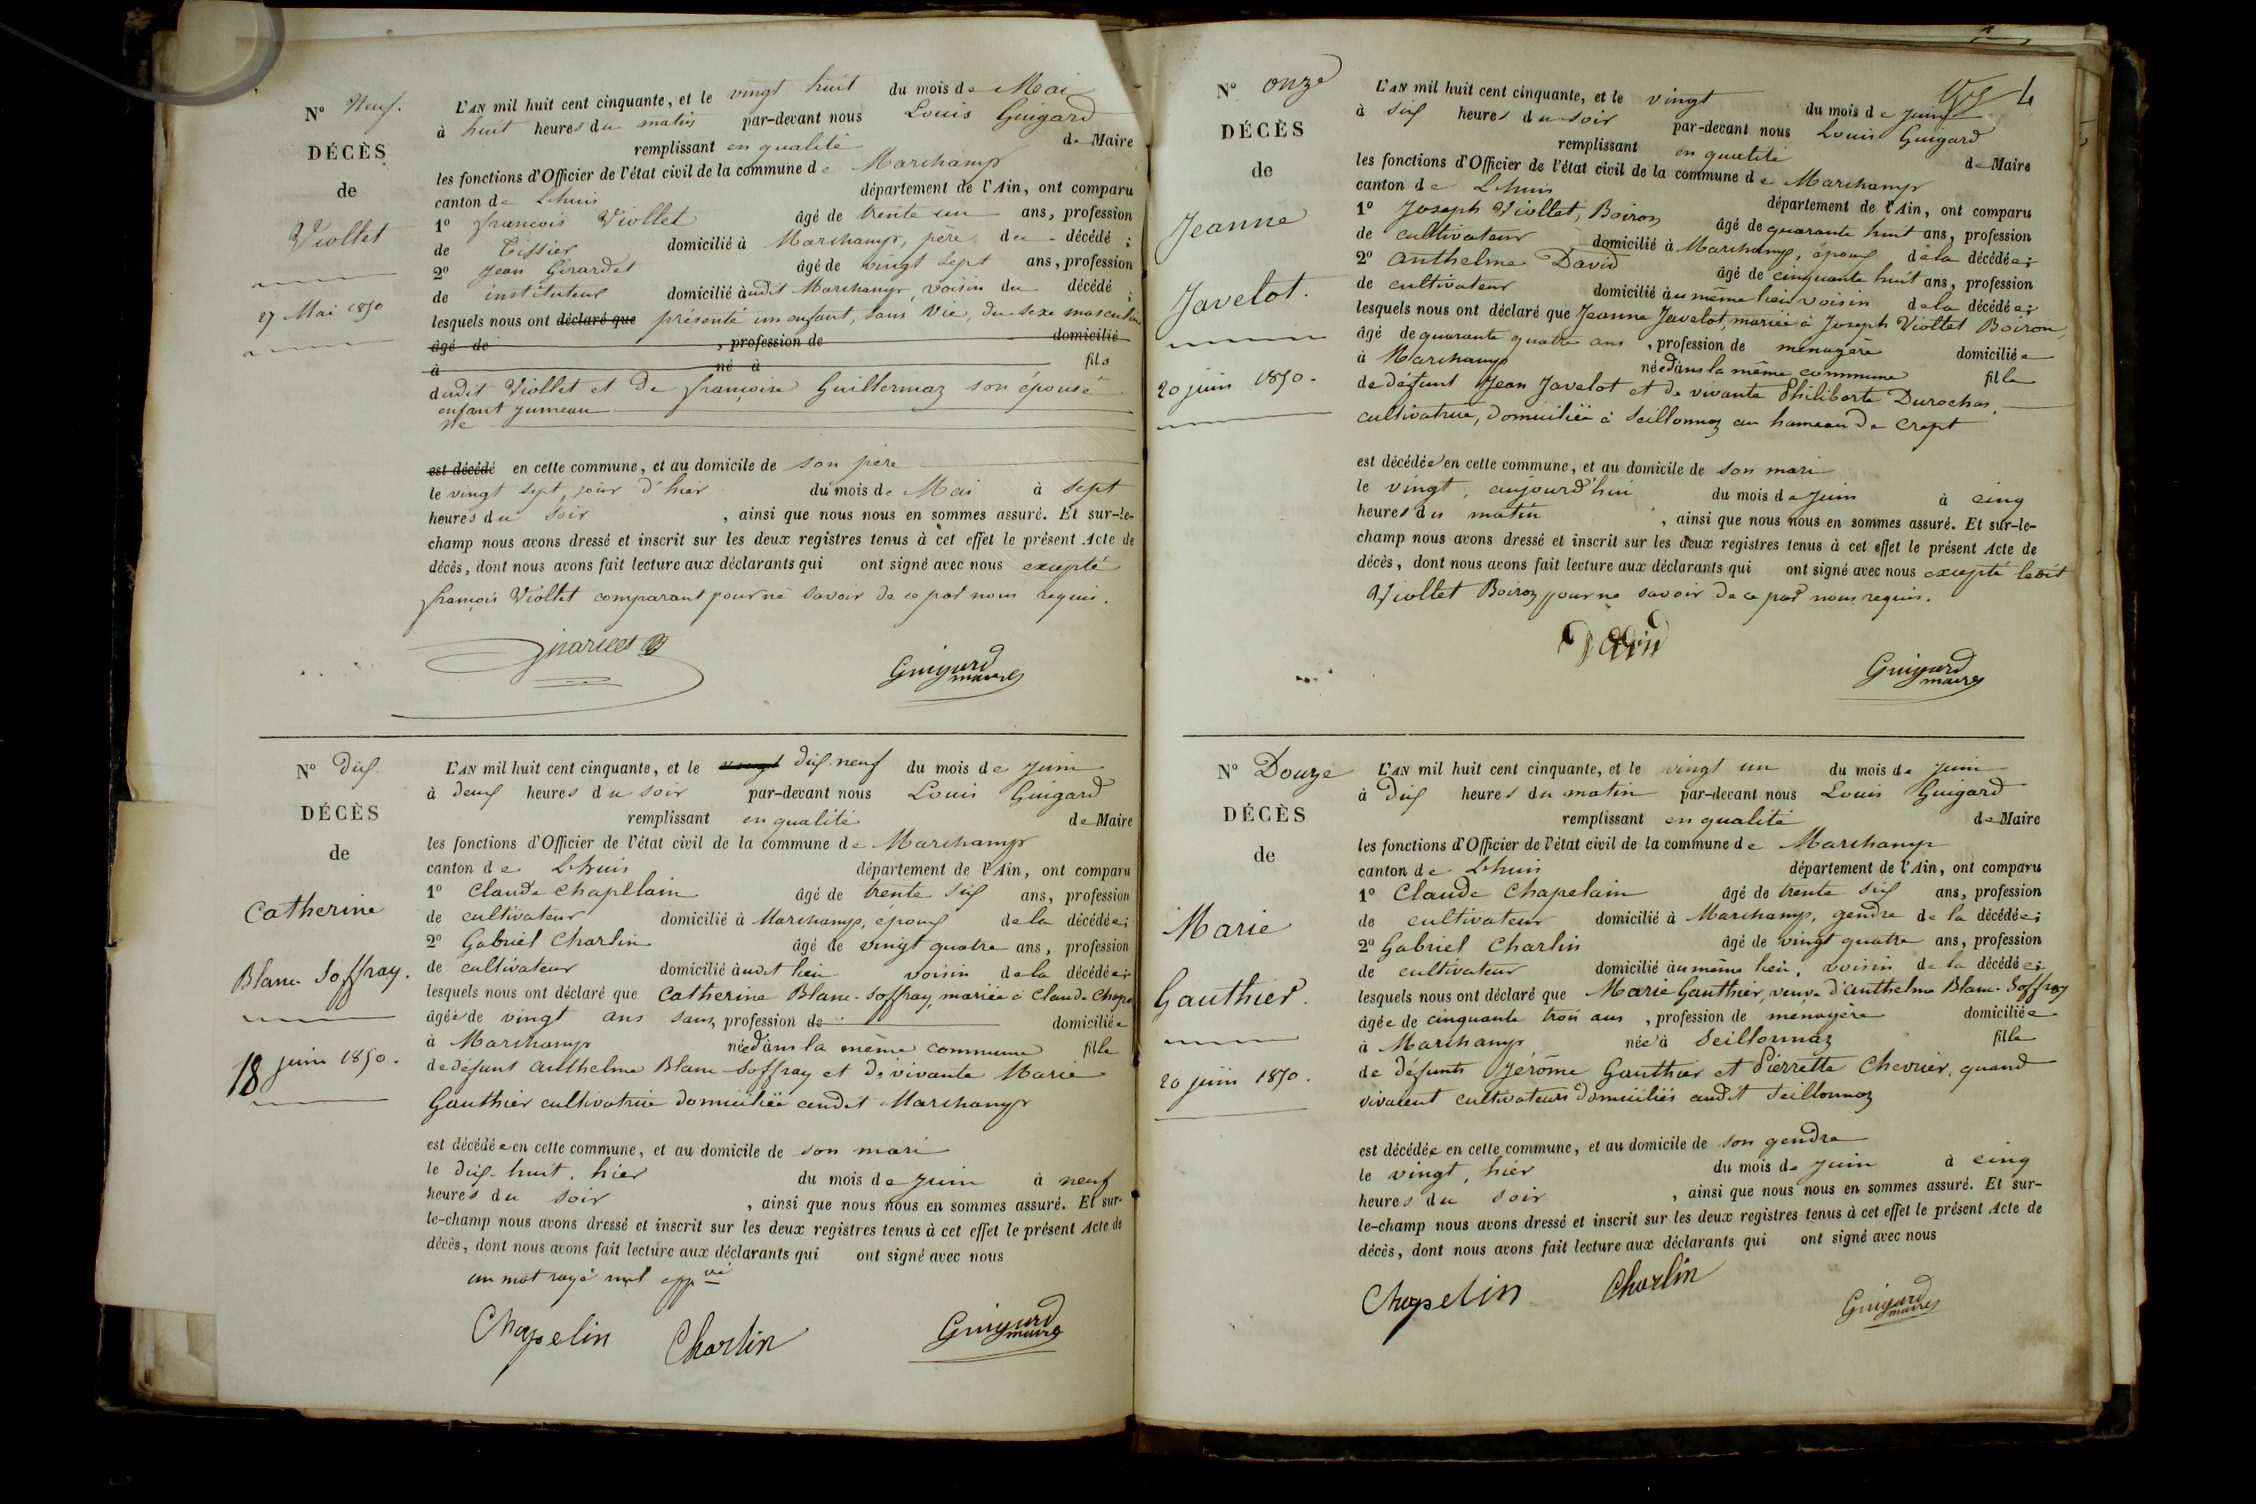 N° Neuf.
DÉCÈS
de
Viollet
27 Mai 1850
L'AN mil huit cent cinquante, et le vingt huit du mois de Mai
à huit heures du matin par-devant nous Louis Guigard
remplissant en qualité de Maire
les fonctions d'Officier de l'état civil de la commune de Marchamp
canton de Lhuis département de l'Ain, ont comparu
1° françois Viollet âgé de trente un ans, profession
de Tissier domicilié à Marchamp, père du décédé ;
2° Jean Girardet âgé de vingt sept ans, profession
de instituteur domicilié àudit Marchamp, voisin du décédé ;
lesquels nous ont déclaré que présenté un enfant, sans vie, du sexe masculin
âgé de , profession de domicilié
à né à fils
dudit Viollet et de françoise Guillermaz son épouse
enfant jumeau
né
est décédé en cette commune, et au domicile de son père
le vingt sept, jour d'hier du mois de Mai à sept
heures du soir , ainsi que nous nous en sommes assuré. Et sur-le-
champ nous avons dressé et inscrit sur les deux registres tenus à cet effet le présent Acte de
décès, dont nous avons fait lecture aux déclarants qui ont signé avec nous excepté
françois Viollet comparant pour ne savoir de ce par nous requis.
Guigard
maire
N° Dix
DÉCÈS
de
Catherine
Blanc-Soffray.
18 juin 1850.
L'AN mil huit cent cinquante, et le vingt dix-neuf du mois de juin
à deux heures du soir par-devant nous Louis Guigard
remplissant en qualité de Maire
les fonctions d'Officier de l'état civil de la commune de Marchamp
canton de Lhuis département de l'Ain, ont comparu
1° Claude Chapllain âgé de trente six ans, profession
de cultivateur domicilié à Marchamp, époux de la décédée;
2° Gabriel Charlin âgé de vingt quatre ans, profession
de cultivateur domicilié àudit lieu voisin de la décédée;
lesquels nous ont déclaré que Catherine Blanc-Soffray, mariée à Claude Chape
âgée de vingt ans sans profession de domiciliée
à Marchamp née dans la même commune fille
de défunt Anthelme Blanc-Soffray et de vivante Marie
Gauthier cultivatrice domiciliée audit Marchamp
est décédée en cette commune, et au domicile de son mari
le dix-huit, hier du mois de juin à neuf
heures du soir , ainsi que nous nous en sommes assuré. Et sur-
le-champ nous avons dressé et inscrit sur les deux registres tenus à cet effet le présent Acte de
décès, dont nous avons fait lecture aux déclarants qui ont signé avec nous
un mot rayé nul appvé
Chapelin Charlin Guigard
maire
4
N° onze
DÉCÈS
de
Jeanne
Javelot.
20 juin 1850.
L'AN mil huit cent cinquante, et le vingt du mois de juin
à six heures du soir par-devant nous Louis Guigard
remplissant en qualité de Maire
les fonctions d'Officier de l'état civil de la commune de Marchamp
canton de Lhuis département de l'Ain, ont comparu
1° Joseph Viollet, Boiron âgé de quarante huit ans, profession
de cultivateur domicilié à Marchamp, époux de la décédée;
2° Anthelme David âgé de cinquante huit ans, profession
de cultivateur domicilié àu même lieu voisin de la décédée;
lesquels nous ont déclaré que Jeanne Javelot, mariée à Joseph Viollet Boiron,
âgé de quarante quatre ans , profession de menagère domiciliée
à Marchamp née dans la même commune fille
de défunt Jean Javelot et de vivante Philiberte Durochas,
cultivatrice, domiciliée à Seillonnaz au hameau de Crept
est décédée en cette commune, et au domicile de son mari
le vingt, aujourd'hui du mois de juin à cinq
heures du matin , ainsi que nous nous en sommes assuré. Et sur-le-
champ nous avons dressé et inscrit sur les deux registres tenus à cet effet le présent Acte de
décès, dont nous avons fait lecture aux déclarants qui ont signé avec nous excepté ledit
Viollet Boiron pour ne savoir de ce par nous requis.
David
Guigard
maire
N° Douze
DÉCÈS
de
Marie
Gauthier.
20 juin 1850.
L'AN mil huit cent cinquante, et le vingt un du mois de juin
à dix heures du matin par-devant nous Louis Guigard
remplissant en qualité de Maire
les fonctions d'Officier de l'état civil de la commune de Marchamp
canton de Lhuis département de l'Ain, ont comparu
1° Claude Chapelain âgé de trente six ans, profession
de cultivateur domicilié à Marchamp, gendre de la décédée;
2° Gabriel Charlin âgé de vingt quatre ans, profession
de cultivateur domicilié àu même lieu, voisin de la décédée;
lesquels nous ont déclaré que Marie Gauthier, veuve d'anthelme Blanc-Soffray
âgée de cinquante trois ans , profession de menagère domiciliée
à Marchamp née à Seillonnaz fille
de défunts Jérôme Gauthier et Pierrette Chevrier, quand
vivaient cultivateurs domiciliés audit Seillonnaz
est décédée en cette commune, et au domicile de son gendre
le vingt, hier du mois de juin à cinq
heures du soir , ainsi que nous nous en sommes assuré. Et sur-
le-champ nous avons dressé et inscrit sur les deux registres tenus à cet effet le présent Acte de
décès, dont nous avons fait lecture aux déclarants qui ont signé avec nous
Chapelin Charlin Guigard
maire